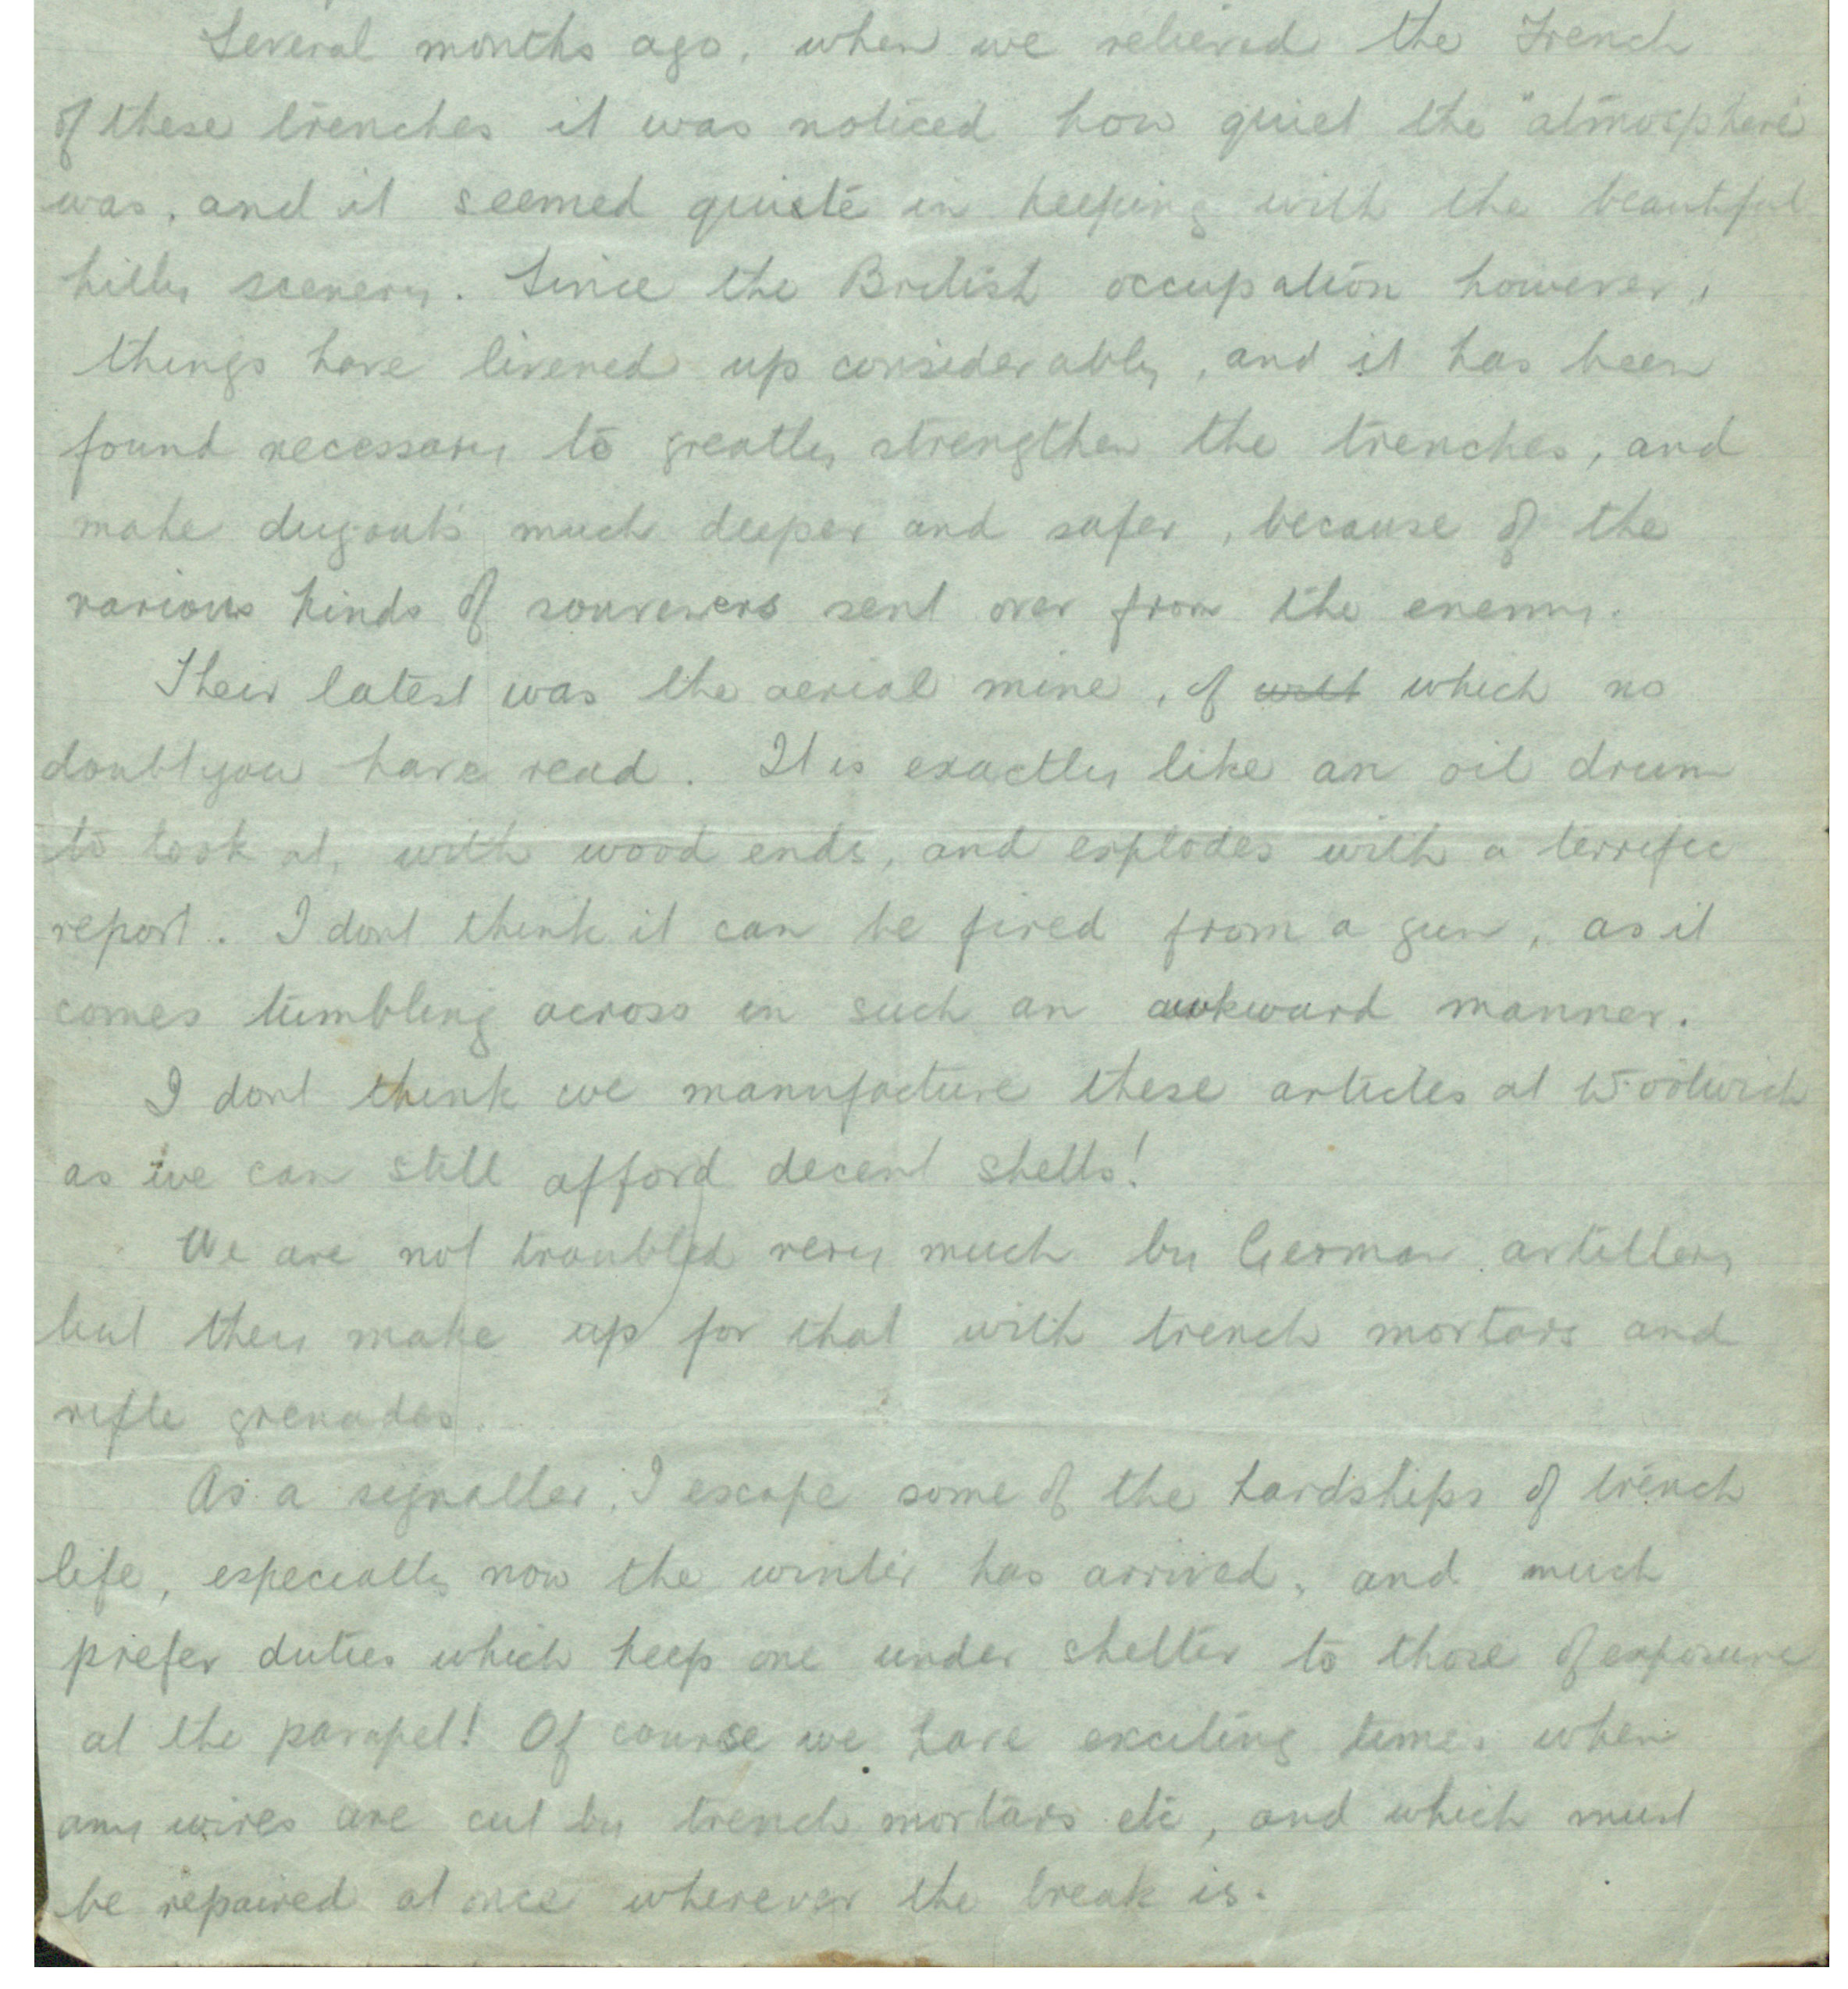 Several months ago, when we relieved the French
of these trenches it was noticed how quiet the "atmosphere"
was, and it seemed quite in keeping with the beautiful
hilly scenery. Since the British occupation however,
things have livened up considerably, and it has been
found necessary to greatly strengthen the trenches, and
make dugouts much deeper and safer, because of the
various kinds of souveneers sent over from the enemy.
Their latest was the aerial mine, of which no
doubt you have read. It is exactly like an oil drum
to look at, with wood ends, and explodes with a terrific
report. I dont think it can be fired from a gun, as it
comes tumbling across in such an awkward manner.
I dont think we manufacture these articles at Woolwich
as we can still afford decent shells!
We are not troubled very much by German artillery
but they make up for that with trench mortars and
rifle grenades.
As a signaller, I escape some of the hardships of trench
life, especially now the winter has arrived, and much
prefer duties which keep one under shelter to those of exposure
at the parapet! Of course we have exciting times when
any wires are cut by trench mortars etc, and which must
be repaired at once wherever the break is.